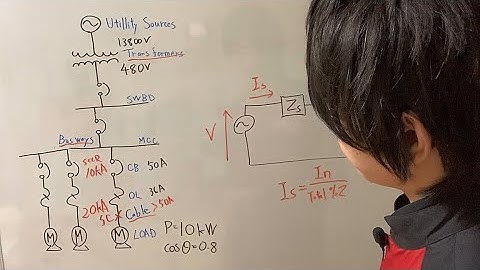 Utillity Sources
13800V
Transformers
480V
SWBD
Busways
MCC
SCCR
10kA
CB 50A
OL 30A
20kA
SC
Cable > 50A
M
M
M
LOAD
P=10kW
cosθ=0.8
Is
Zs
V
Is = In
Total %Z